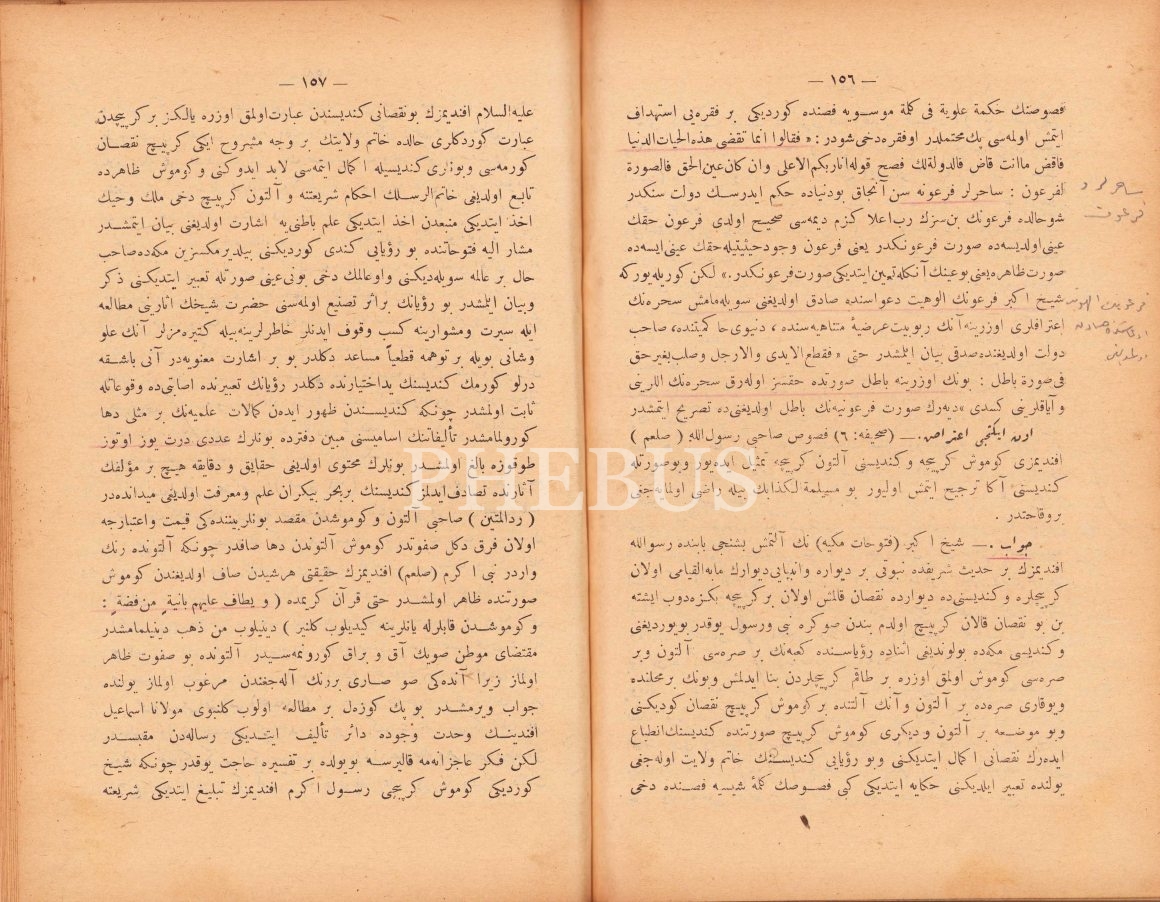 — ١٥٦ —
فصوصنك حكمة علوية فى كلمة موسويه فصنده كورديكى بر فقره‌يى استهداف
ايتمش اولمه‌سى پك محتملدر اوفقره دخى شودر : « فقالوا انما تقضى هذه الحيات الدنيا
فاقض ماانت قاض فالدولةلك فصح قوله انا ربكم الاعلى وان كان عين الحق فالصورة
لفرعون : ساحرلر فرعونه سن آنجاق بودنياده حكم ايدرسك دولت سنكدر
شوحالده فرعونك بن سزك رب اعلاكزم ديمه‌سى صحيح اولدى فرعون حقك
عينى اولديسه‌ده صورت فرعونكدر يعنى فرعون وجود حيثيتيله حقك عينى ايسه‌ده
صورت ظاهره يعنى بوعينك انكله تعين ايتديكى صورت فرعونكدر. » لكن كوريله‌يوركه
شيخ اكبر فرعونك الوهيت دعواسنده صادق اولديغنى سويله‌مامش سحره‌نك
اعترافلرى اوزرينه آنك ربوبيت عرضيهٔ متناهيه‌سنده ، دنيوى حاكميتنده ، صاحب
دولت اولديغنده صدقى بيان ايلمشدر حتى « فقطع الايدى والارجل وصلب بغير حق
فى صورة باطل : بونك اوزرينه باطل صورتده حقسز اوله‌رق سحره‌نك اللرينى
و آياقلرينى كسدى » ديه‌رك صورت فرعونيه‌نك باطل اولديغنى‌ده تصريح ايتمشدر
اون ايكنجى اعتراض . — (صحيفه: ٦) فصوص صاحبى رسول الله ( صلعم )
افنديمزى كوموش كرپيچه و كنديسنى آلتون كرپيچه تمثيل ايده‌يور وبوصورتله
كنديسنى آكا ترجيح ايتمش اوليور بو مسيلمة الكذابك بيله راضى اولمايه‌جغى
بروقاحتدر .
جواب . — شيخ اكبر (فتوحات مكيه) نك آلتمش بشنجى بابنده رسوالله
افنديمزك بر حديث شريفده نبوتى بر ديواره وانبيايى ديوارك مابه القيامى اولان
كرپيچلره و كنديسنى‌ده ديوارده نقصان قالمش اولان بر كرپيچه بكزه‌دوب ايشته
بن بو نقصان قالان كرپيچ اولدم بندن صوكره نبى ورسول يوقدر بويورديغى
و كنديسى مكه‌ده بولونديغى اثناده رؤياسنده كعبه‌نك بر صره‌سى آلتون وبر
صره‌سى كوموش اولمق اوزره بر طاقم كرپيچلردن بنا ايدلمش وبونك بر محلنده
ويوقارى صره‌ده بر آلتون و آنك آلتنده بر كوموش كرپيچ نقصان كوديكنى
وبو موضعه بر آلتون وديكرى كوموش كرپيچ صورتنده كنديسنك انطباع
ايده‌رك نقصانى اكمال ايتديكنى وبو رؤيايى كنديسنك خاتم ولايت اوله‌جغى
يولنده تعبير ايلديكنى حكايه ايتديكى كبى فصوصك كلمهٔ شيسيه فصنده دخى
ساحرلر
فرعونه
فرعونك الوهيت
— ١٥٧ —
عليه السلام افنديمزك بونقصانى كنديسندن عبارت اولمق اوزره يالكز بر كرپيچدن
عبارت كوردكلرى حالده خاتم ولايتك بر وجه مشروح ايكى كرپيچ نقصان
كورمه‌سى وبونلرى كنديسيله اكمال ايتمه‌سى لابد ايدوكنى و كوموش ظاهرده
تابع اولديغى خاتم الرسلك احكام شريعتنه و آلتون كرپيچ دخى ملك وحيك
اخذ ايتديكى منبعدن اخذ ايتديكى علم باطنى‌يه اشارت اولديغى بيان ايتمشدر
مشار اليه فتوحاتنده بو رؤيايى كندى كورديكنى بيلديرمكسزين مكه‌ده صاحب
حال بر عالمه سويله‌ديكنى و او عالمك دخى بونى عينى صورتله تعبير ايتديكنى ذكر
وبيان ايلمشدر بو رؤيانك براثر تصنيع اولمه‌سنى حضرت شيخك آثارينى مطالعه
ايله سيرت ومشوارينه كسب وقوف ايدنلر خاطرلرينه بيله كتيره‌مزلر آنك علو
وشانى بويله بر توهمه قطعياً مساعد دكلدر بو بر اشارت معنويه‌در آنى باشقه
درلو كورمك كنديسنك يداختيارنده دكلدر رؤيانك تعبيرنده اصابتى‌ده وقوعاتله
ثابت اولمشدر چونكه كنديسندن ظهور ايدن كمالات علميه‌نك بر مثلى دها
كورولمامشدر تأليفاتنك اساميسنى مبين دفترده بونلرك عددى درت يوز اوتوز
طوقوزه بالغ اولمشدر بونلرك محتوى اولديغى حقايق و دقايقه هيچ بر مؤلفك
آثارنده تصادف ايدلمز كنديسنك بر بحر بيكران علم ومعرفت اولديغى ميدانده‌در
( رد المتين ) صاحبى آلتون و كوموشدن مقصد بونلر بيننده‌كى قيمت واعتبارجه
اولان فرق دكل صفوتدر كوموش آلتوندن دها صافدر چونكه آلتونده رنك
واردر نبى اكرم (صلعم) افنديمزك حقيقتى هرشيدن صاف اولديغندن كوموش
صورتنده ظاهر اولمشدر حتى قرآن كريمده ( و يطاف عليهم بانية من فضة :
و كوموشدن قابلرله يانلرينه كيديلوب كلنير ) دينيلوب من ذهب دينيلمامشدر
مقتضاى موطن صويك آق و براق كورونمه‌سيدر . آلتونده بو صفوت ظاهر
اولماز زيرا آنده‌كى صو صارى بررنك آله‌جغندن مرغوب اولماز يولنده
جواب ويرمشدر بو پك كوزه‌ل بر مطالعه اولوب كلنبوى مولانا اسماعيل
افندينك وحدت وجوده دائر تأليف ايتديكى رساله‌دن مقبسدر
لكن فكر عاجزانه‌مه قاليرسه بويولده بر تفسيره حاجت يوقدر چونكه شيخ
كورديكى كوموش كرپيچى رسول اكرم افنديمزك تبليغ ايتديكى شريعته
PHEBUS